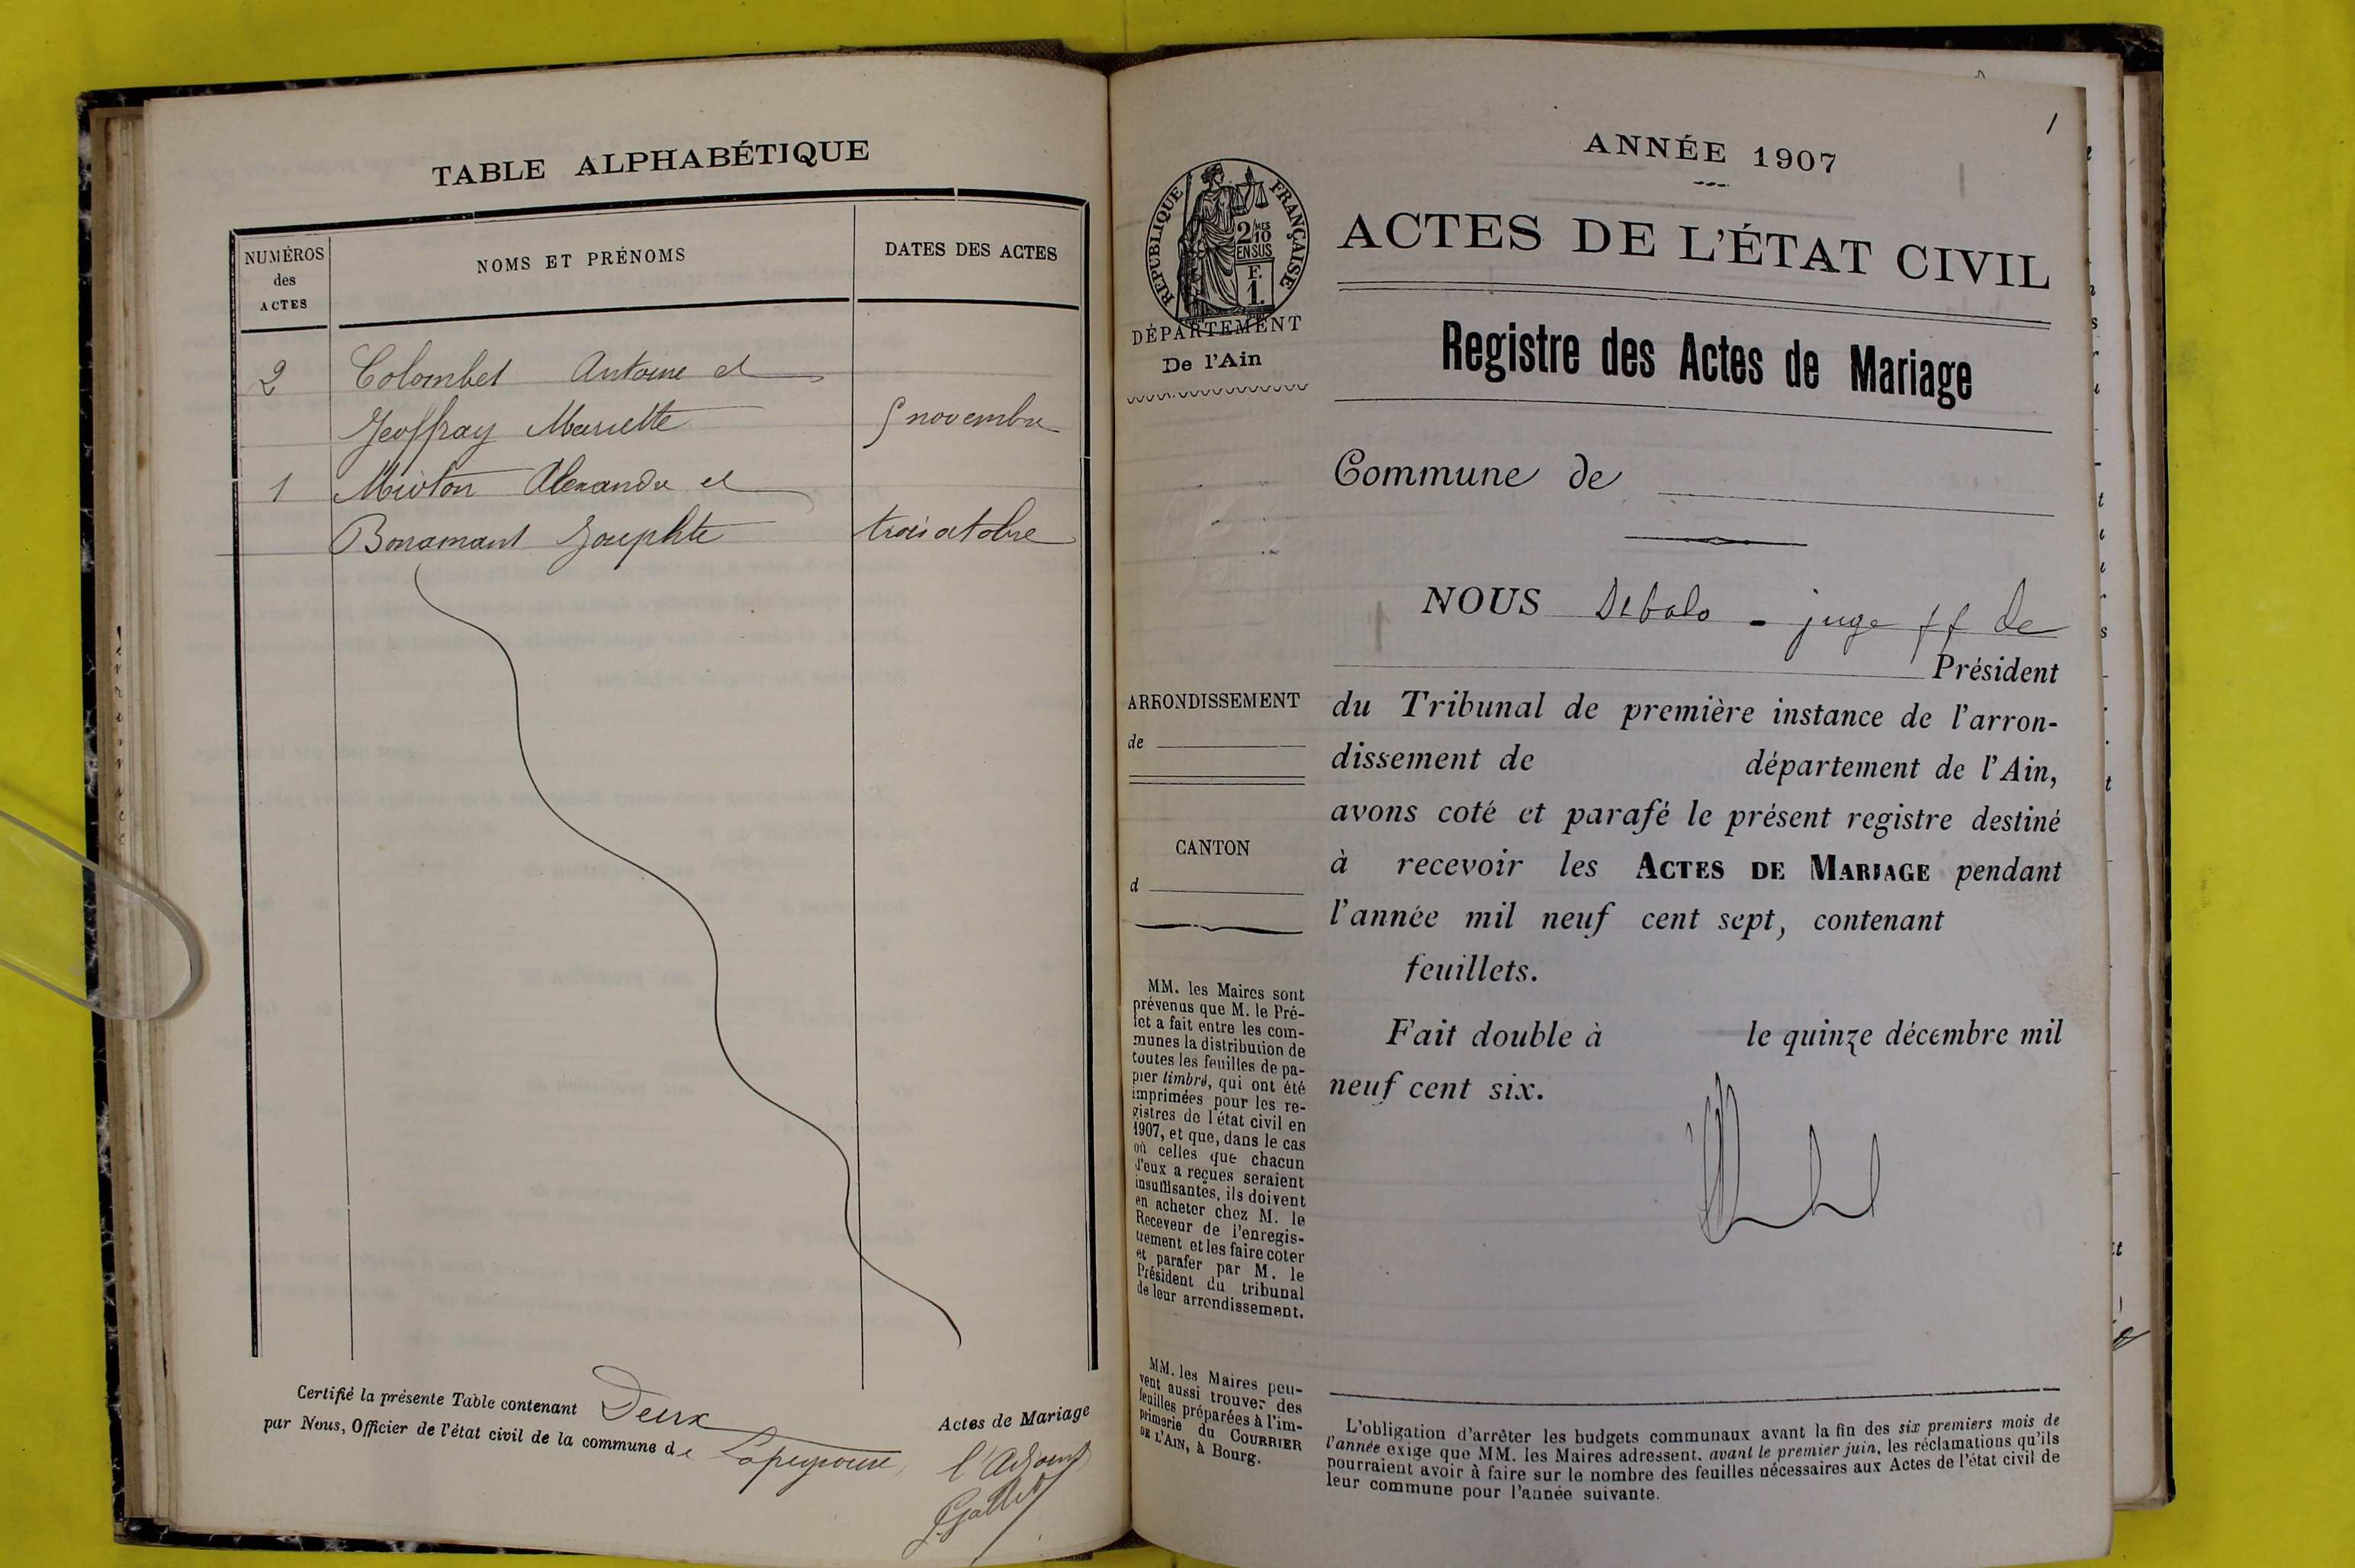 TABLE ALPHABÉTIQUE
NUMÉROS
des
ACTES
NOMS ET PRÉNOMS
DATES DES ACTES
2 Colombet Antoine et
Geoffray Mariette 5 novembre
1 Mioton Alexandre et
Bonamant Josephte trois octobre
Certifié la présente Table contenant Deux Actes de Mariage
par Nous, Officier de l'état civil de la commune de Lapeyrouse,
l'Adjoint
1
RÉPUBLIQUE FRANÇAISE
2/10MES
EN SUS
F.
1.
DÉPARTEMENT
De l'Ain
ARRONDISSEMENT
de
CANTON
d
MM. les Maires sont
prévenus que M. le Pré-
fet a fait entre les com-
munes la distribution de
toutes les feuilles de pa-
pier timbré, qui ont été
imprimées pour les re-
gistres de l'état civil en
1907, et que, dans le cas
où celles que chacun
d'eux a reçues seraient
insuffisantes, ils doivent
en acheter chez M. le
Receveur de l'enregis-
trement et les faire coter
et parafer par M. le
Président du tribunal
de leur arrondissement.
MM. les Maires peu-
vent aussi trouver des
feuilles préparées à l'im-
primerie du COURRIER
DE L'AIN, à Bourg.
ANNÉE 1907
ACTES DE L'ÉTAT CIVIL
Registre des Actes de Mariage
Commune de
NOUS Debolo - juge ff de
Président
du Tribunal de première instance de l'arron-
dissement de département de l'Ain,
avons coté et parafé le présent registre destiné
à recevoir les ACTES DE MARIAGE pendant
l'année mil neuf cent sept, contenant
feuillets.
Fait double à le quinze décembre mil
neuf cent six.
L'obligation d'arrêter les budgets communaux avant la fin des six premiers mois de
l'année exige que MM. les Maires adressent, avant le premier juin, les réclamations qu'ils
pourraient avoir à faire sur le nombre des feuilles nécessaires aux Actes de l'état civil de
leur commune pour l'année suivante.